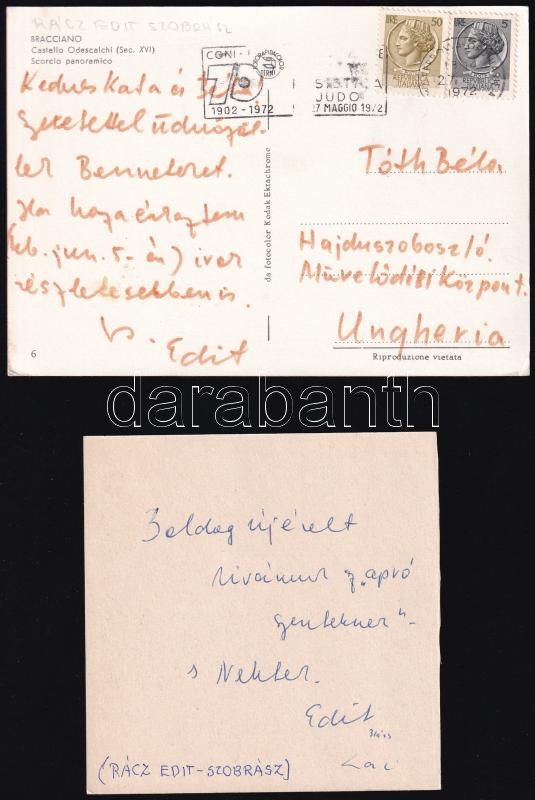 RÁCZ EDIT SZOBRÁSZ
BRACCIANO
Castello Odescalchi (Sec. XVI)
Scorcio panoramico
Kedves Kata és
szeretettel üdvözöl-
lek Benneteket.
Ha hazaérkeztem
(kb. jun. 5-én) írok
részletesebben is.
Edit
6
da fotocolor Kodak Ektachrome
CONI
70
1902-1972
JUDO
27 MAGGIO 1972
LIRE 50
1972
Tóth Béla
Hajduszoboszló.
Művelődési Központ.
Ungheria
Riproduzione vietata
darabanth
Boldog új évet
kívánunk az „apró
szenteknek"
s Nektek.
Edit
Laci
(RÁCZ EDIT-SZOBRÁSZ)